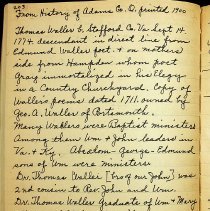 203
From History of Adams Co. O. printed 1900
Thomas Waller b. Stafford Co. Va. Sept 14.
1774. descendant in direct line from
Edmund Waller poet. & on mothers
side from Hampden whom poet
Gray immortalized in his Elegy
in a Country Churchyard. Copy of
Wallers poems dated 1711. owned by
Geo. A. Waller of Portsmouth.
Many Wallers were Baptist ministers
among them Wm & John leaders in
Va. & Ky. Absalom - George - Edmund
sons of Wm were ministers
Dr. Thomas Waller [bro of John] was
2nd cousin to Rev John and Wm.
Dr. Thomas Waller Graduate of Wm & Mary